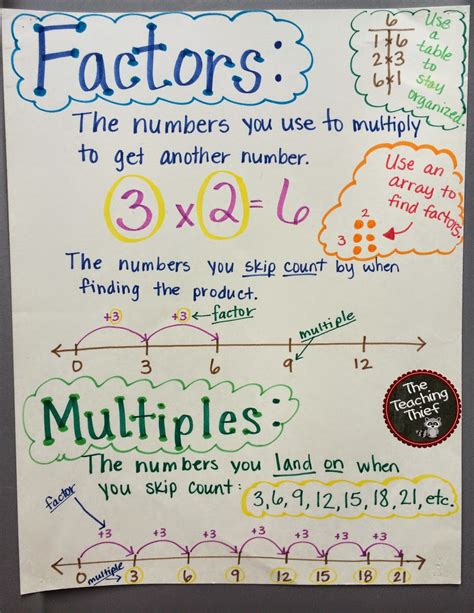 Factors:
6
1 x 6
2 x 3
6 x 1
Use
a
table
to
stay
organized.
The numbers you use to multiply
to get another number.
3 x 2 = 6
Use an
array to
find factors.
2
3
The numbers you skip count by when
finding the product.
+3 +3 ← factor
multiple
0 3 6 9 12
Multiples:
The
Teaching
Thief
The numbers you land on when
you skip count: 3, 6, 9, 12, 15, 18, 21, etc.
factor
+3 +3 +3 +3 +3 +3 +3
0 multiple 3 6 9 12 15 18 21